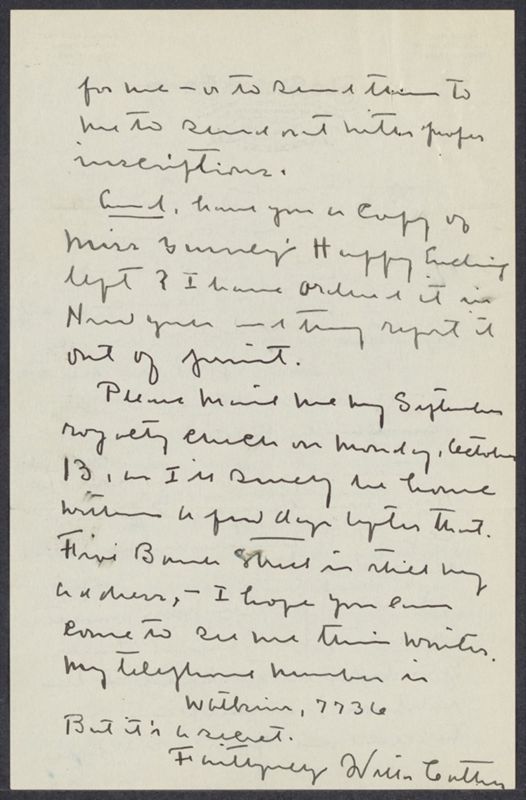 for me – or to send them to
me to send out with proper
inscriptions.
And, have you a copy of
Miss Guiney's Happy Ending
left? I have ordered it in
New York and they report it
out of print.
Please mail me my September
royalty check on Monday, October
13, as I'll surely be home
within a few days after that.
Five Bank Street is still my
address, – I hope you can
come to see me this winter.
My telephone number is
Watkins, 7736
But it's a secret.
Faithfully Willa Cather